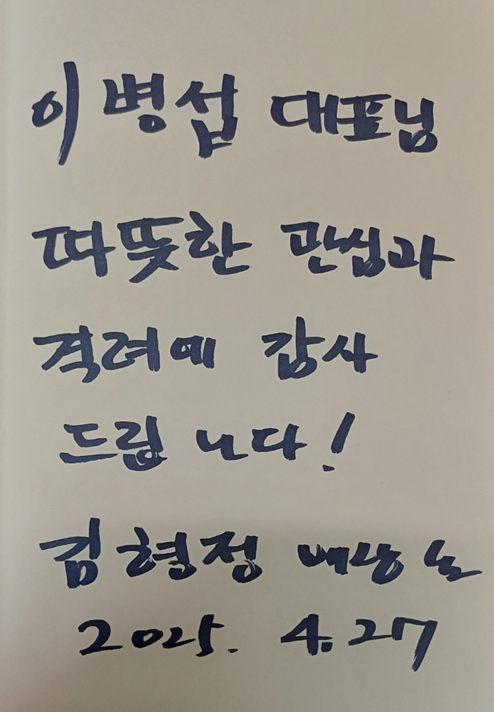 이병섭 대표님
따뜻한 관심과
격려에 감사
드립니다!
김형정 배상
2025. 4.27